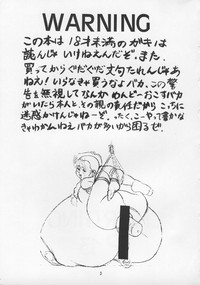 WARNING
この本は18才未満のガキは
読んじゃいけねえんだぞ。また、
買ってからぐだぐだ文句たれんじゃあ
ねえ!いらなきゃ買うなよバカ。この警
告を無視してなんかめんどーおこすバカ
がいたら本人と、その親の責任だからこっちに
迷惑かけんじゃねーぞ、ったく、こーやって書かな
きゃわかんねえバカが多いから困るぜ。